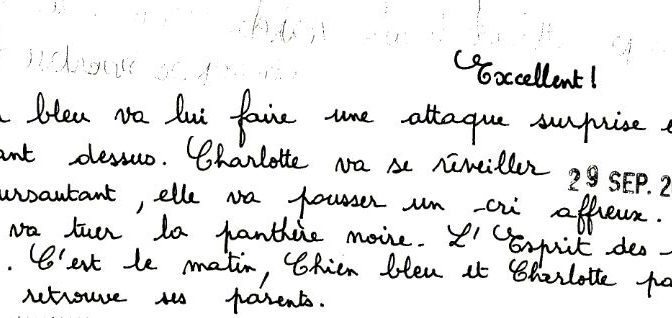 Excellent !
bleu va lui faire une attaque surprise e
ant dessus. Charlotte va se réveiller 29 SEP. 2
ursautant, elle va pousser un cri affreux.
va tuer la panthère noire. L'Esprit des
. C'est le matin, Chien bleu et Charlotte pa
retrouve ses parents.